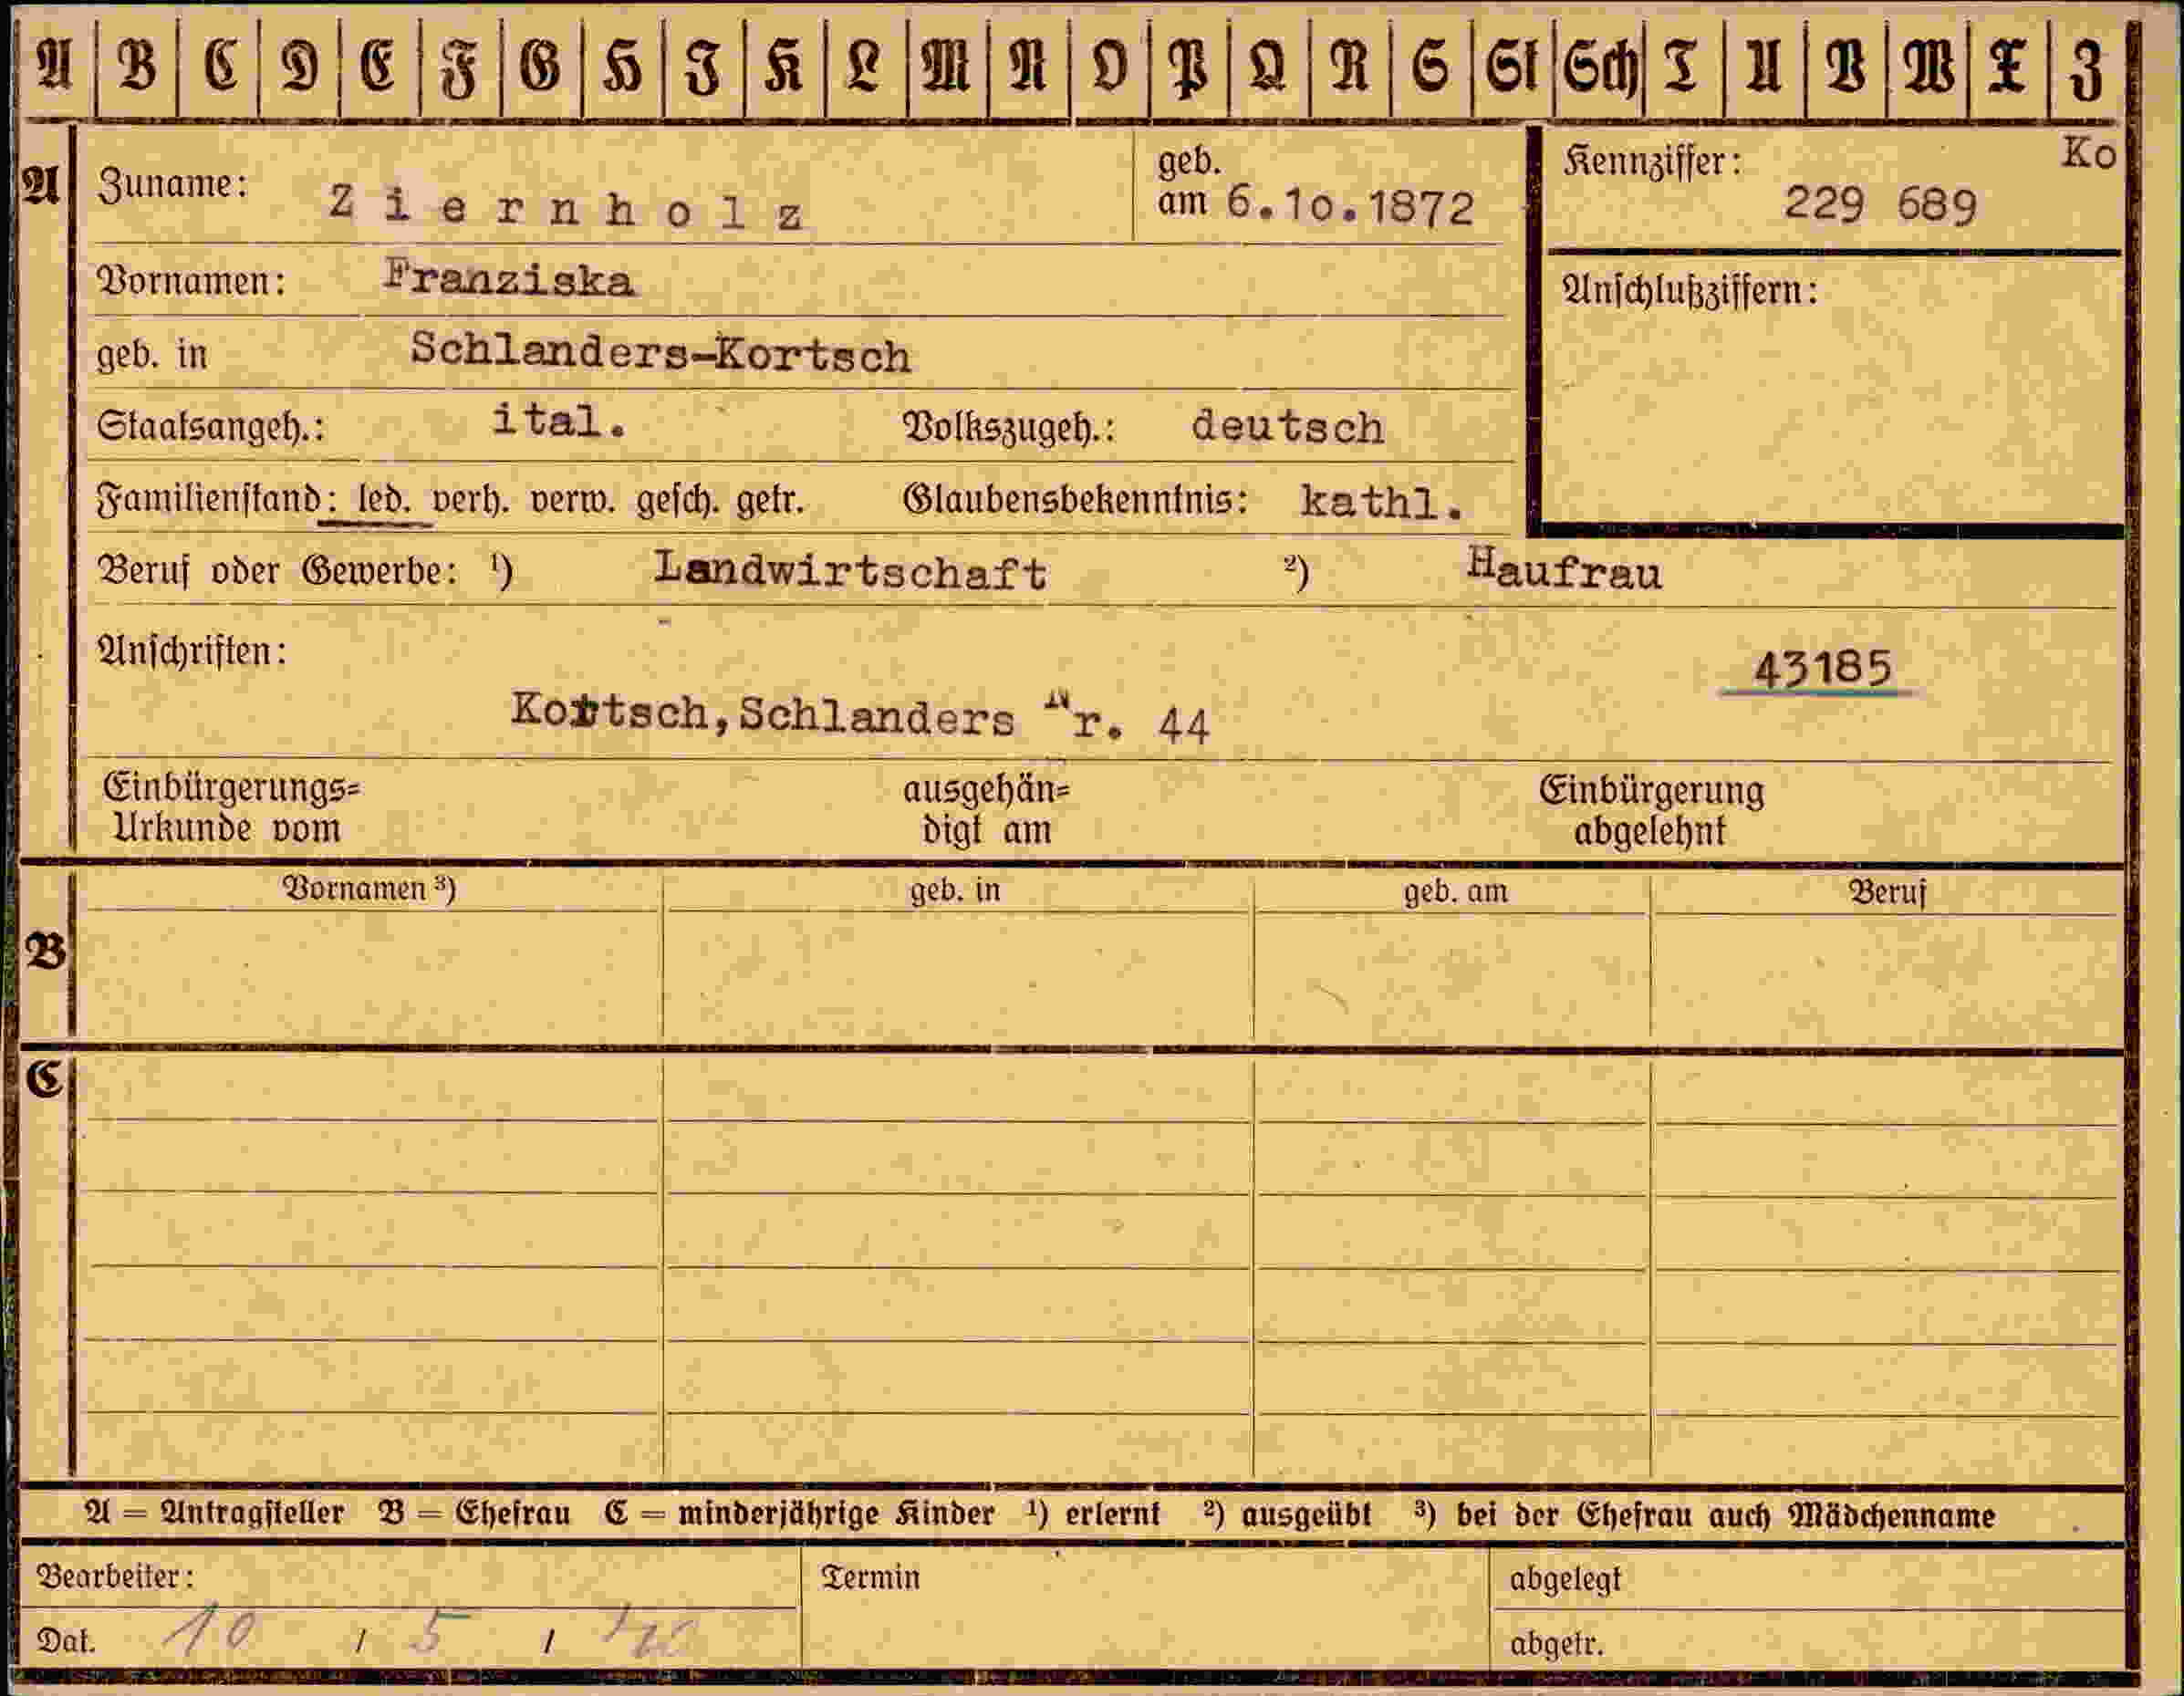 A B C D E F G H I K L M N O P Q R S St Sch T U V W X Z
A Zuname: Ziernholz geb. am 6.10.1872 Kennziffer: 229 689 Ko
Vornamen: Franziska Anschlußziffern:
geb. in Schlanders-Kortsch
Staatsangeh.: ital. Volkszugeh.: deutsch
Familienstand: led. verh. verw. gesch. getr. Glaubensbekenntnis: kathl.
Beruf oder Gewerbe: ¹) Landwirtschaft ²) Haufrau
Anschriften: 43185
Kortsch, Schlanders Nr. 44
Einbürgerungs= ausgehän= Einbürgerung
Urkunde vom digt am abgelehnt
Vornamen ³) geb. in geb. am Beruf
B
C
A = Antragsteller B = Ehefrau C = minderjährige Kinder ¹) erlernt ²) ausgeübt ³) bei der Ehefrau auch Mädchenname
Bearbeiter: Termin abgelegt
Dat. 10 / 5 / abgetr.